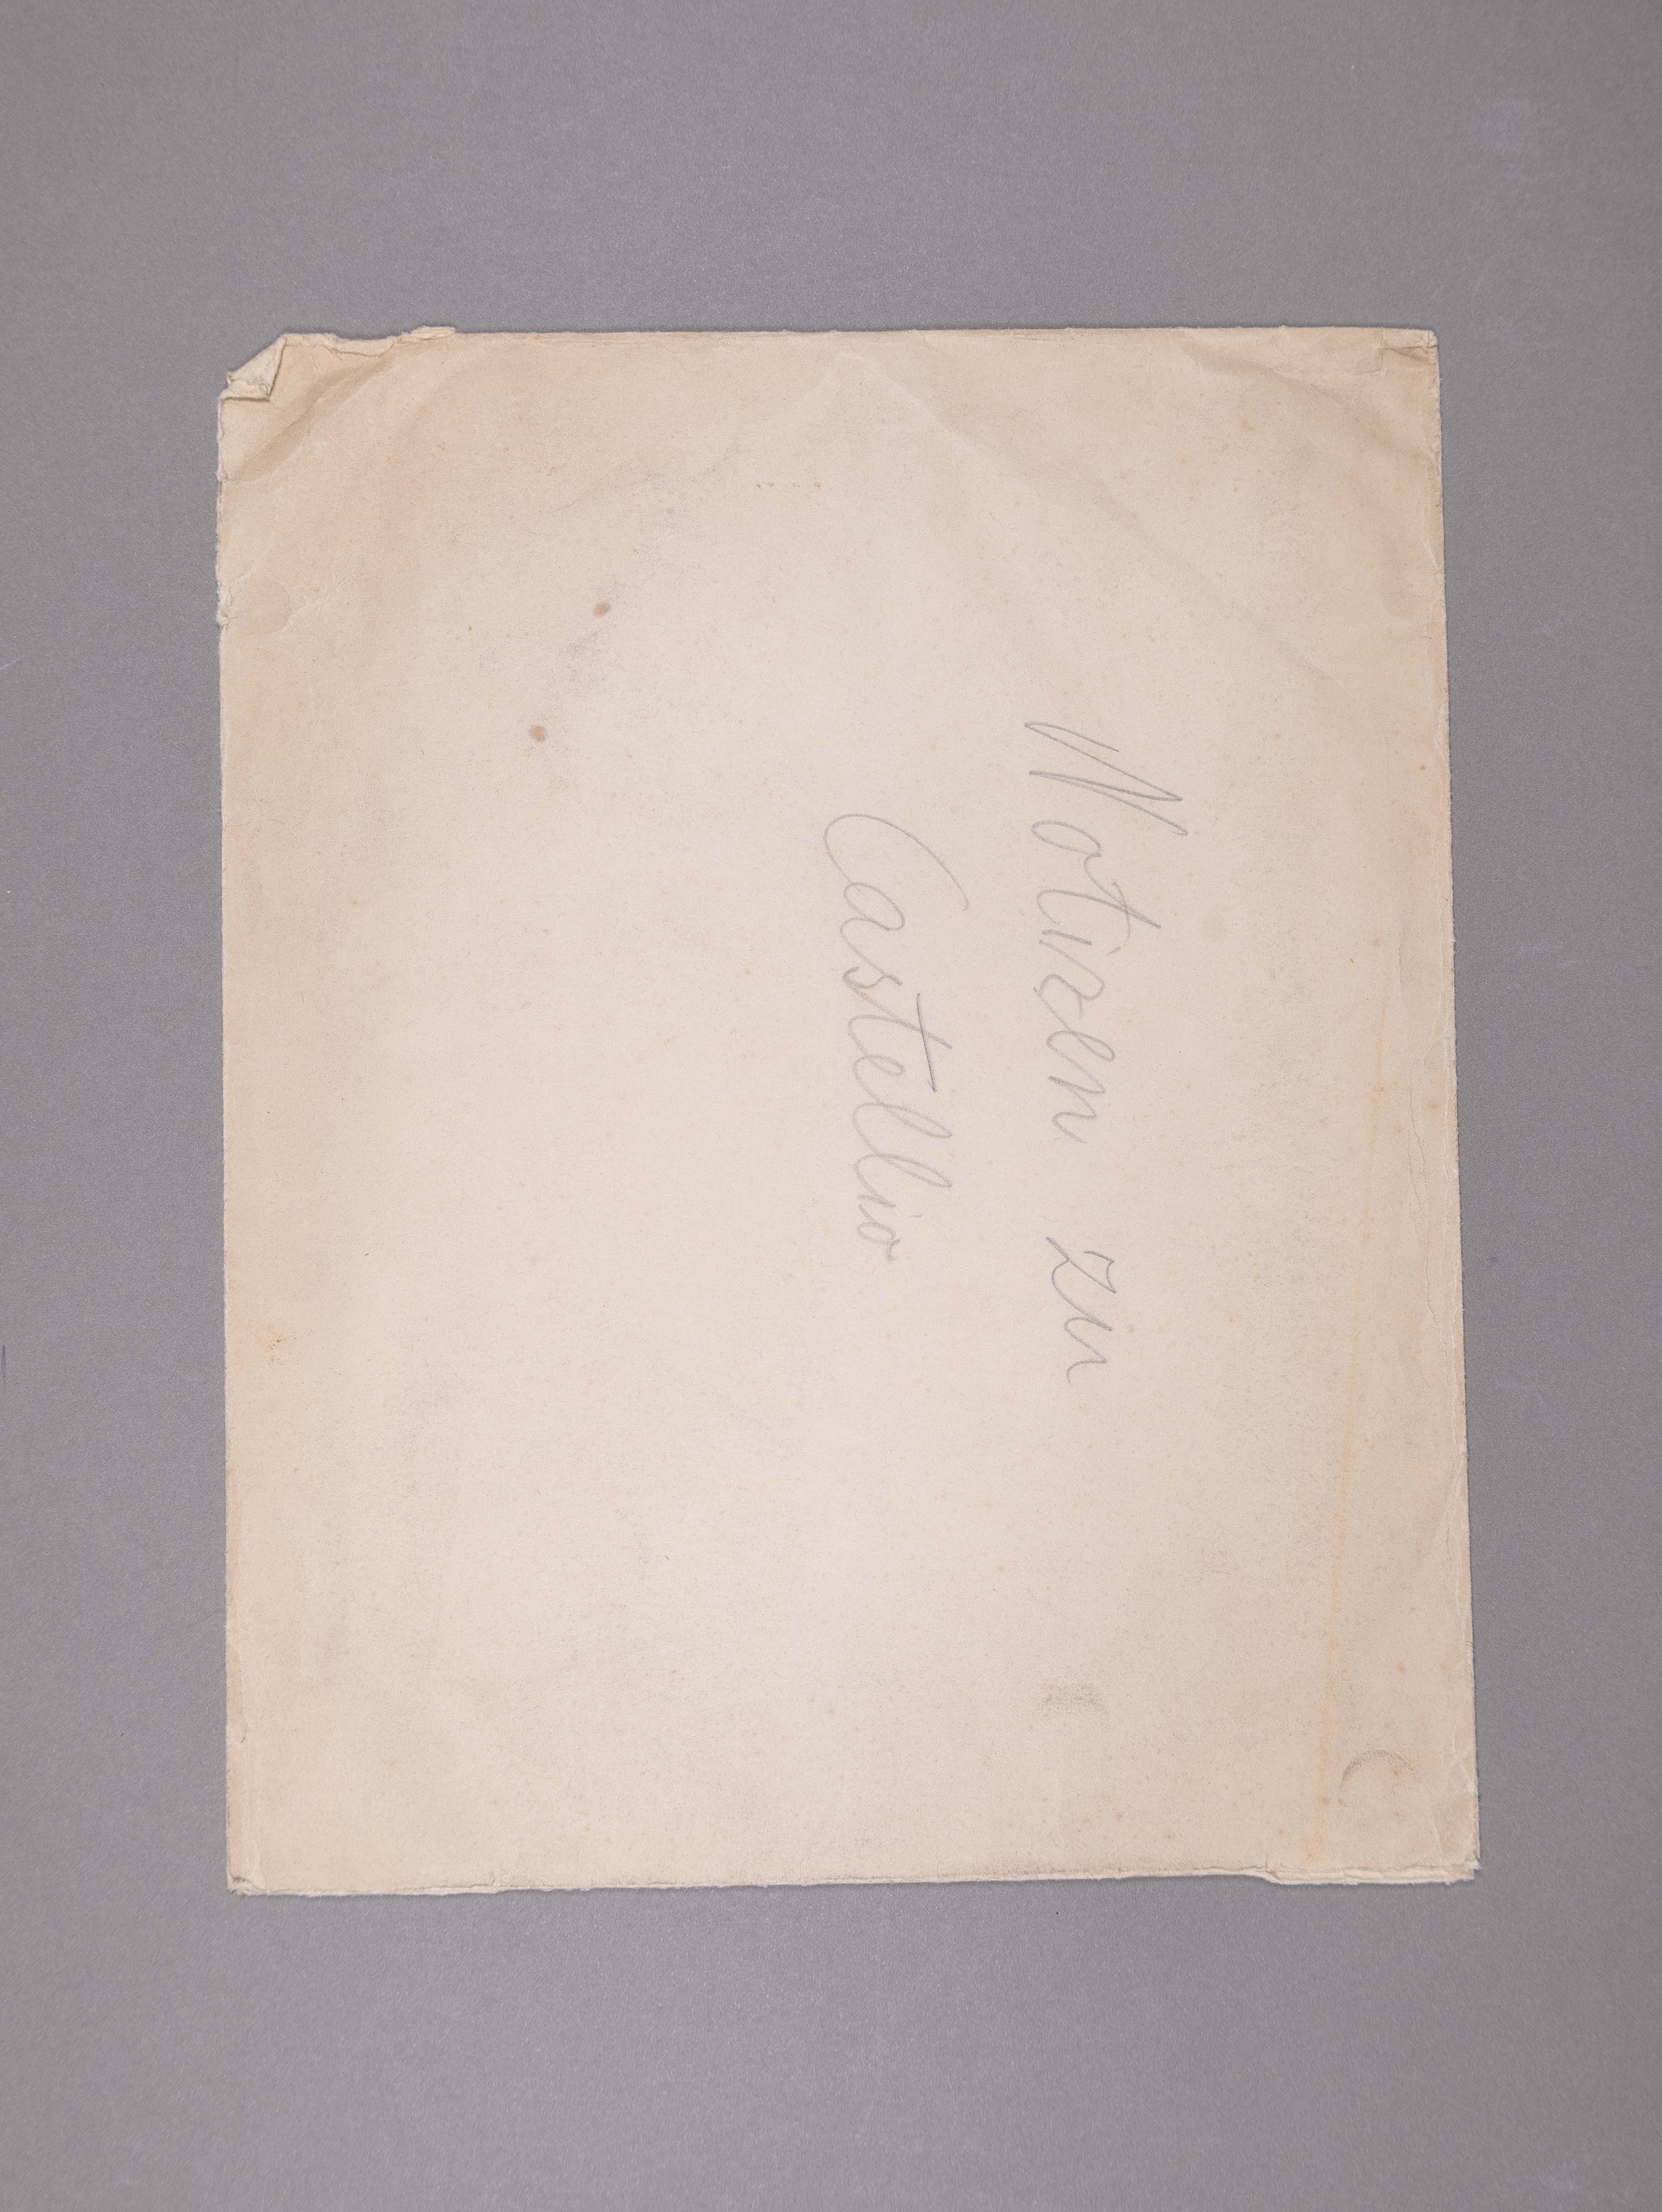 Notizen zu
Castellio